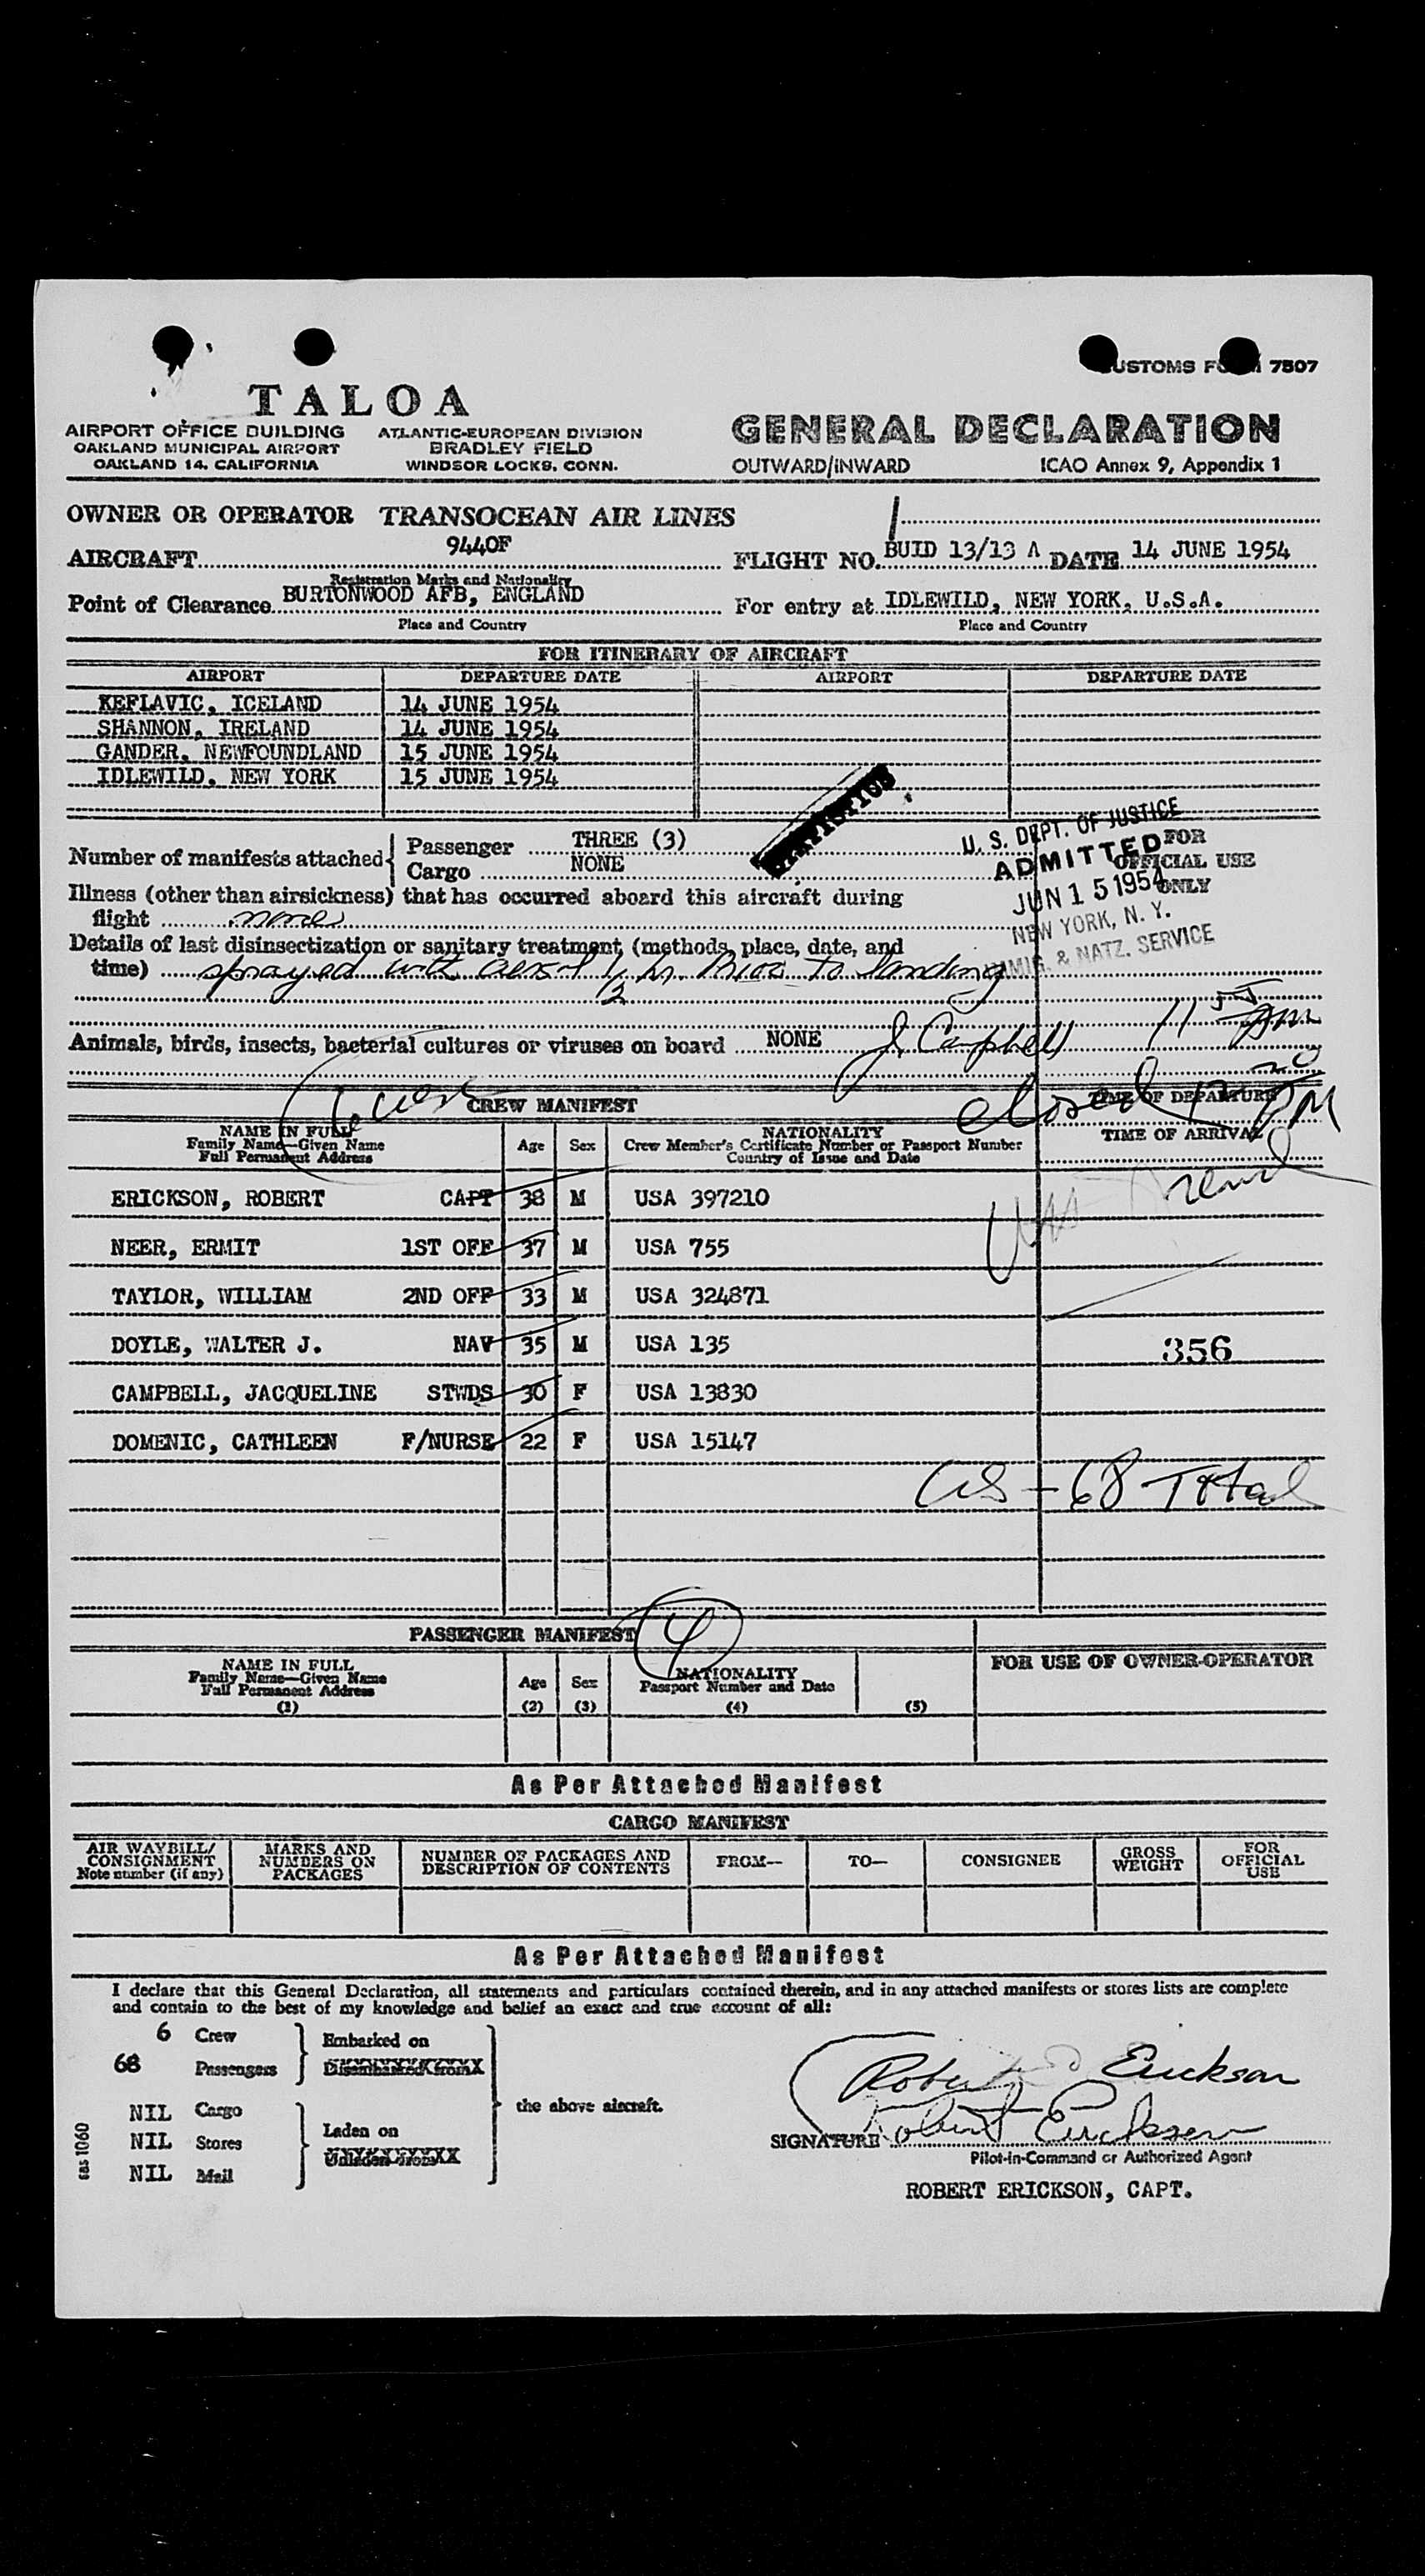 CUSTOMS FORM 7507
TALOA
AIRPORT OFFICE BUILDING
OAKLAND MUNICIPAL AIRPORT
OAKLAND 14, CALIFORNIA
ATLANTIC-EUROPEAN DIVISION
BRADLEY FIELD
WINDSOR LOCKS, CONN.
GENERAL DECLARATION
OUTWARD/INWARD ICAO Annex 9, Appendix 1
OWNER OR OPERATOR TRANSOCEAN AIR LINES
AIRCRAFT 9440F FLIGHT NO. BUID 13/13 A DATE 14 JUNE 1954
Registration Marks and Nationality
Point of Clearance BURTONWOOD AFB, ENGLAND For entry at IDLEWILD, NEW YORK, U.S.A.
Place and Country Place and Country
FOR ITINERARY OF AIRCRAFT
AIRPORT DEPARTURE DATE AIRPORT DEPARTURE DATE
KEFLAVIC, ICELAND 14 JUNE 1954
SHANNON, IRELAND 14 JUNE 1954
GANDER, NEWFOUNDLAND 15 JUNE 1954
IDLEWILD, NEW YORK 15 JUNE 1954
Number of manifests attached
Passenger THREE (3)
Cargo NONE
FOR OFFICIAL USE ONLY
U. S. DEPT. OF JUSTICE
ADMITTED
JUN 15 1954
NEW YORK, N. Y.
IMMIG. & NATZ. SERVICE
Illness (other than airsickness) that has occurred aboard this aircraft during
flight none
Details of last disinsectization or sanitary treatment (methods, place, date, and
time) sprayed with aerosol 1/2 hr Prior to landing
Animals, birds, insects, bacterial cultures or viruses on board NONE J. Campbell 11 55 pm
closed 12 20 PM
CREW MANIFEST
TIME OF DEPARTURE
TIME OF ARRIVAL
NAME IN FULL
Family Name—Given Name
Full Permanent Address
Age Sex
NATIONALITY
Crew Member's Certificate Number or Passport Number
Country of Issue and Date
ERICKSON, ROBERT CAPT 38 M USA 397210
NEER, ERMIT 1ST OFF 37 M USA 755
TAYLOR, WILLIAM 2ND OFF 33 M USA 324871
DOYLE, WALTER J. NAV 35 M USA 135
356
CAMPBELL, JACQUELINE STWDS 30 F USA 13830
DOMENIC, CATHLEEN F/NURSE 22 F USA 15147
US - 68 Total
PASSENGER MANIFEST 4
NAME IN FULL
Family Name—Given Name
Full Permanent Address
(1)
Age
(2)
Sex
(3)
NATIONALITY
Passport Number and Date
(4)
(5)
FOR USE OF OWNER-OPERATOR
As Per Attached Manifest
CARGO MANIFEST
AIR WAYBILL/
CONSIGNMENT
Note number (if any)
MARKS AND
NUMBERS ON
PACKAGES
NUMBER OF PACKAGES AND
DESCRIPTION OF CONTENTS
FROM—
TO—
CONSIGNEE
GROSS
WEIGHT
FOR
OFFICIAL
USE
As Per Attached Manifest
I declare that this General Declaration, all statements and particulars contained therein, and in any attached manifests or stores lists are complete
and contain to the best of my knowledge and belief an exact and true account of all:
6 Crew
68 Passengers
Embarked on
Disembarked from
NIL Cargo
NIL Stores
NIL Mail
Laden on
Unladen from
the above aircraft.
Robert Erickson
SIGNATURE Robert Erickson
Pilot-in-Command or Authorized Agent
ROBERT ERICKSON, CAPT.